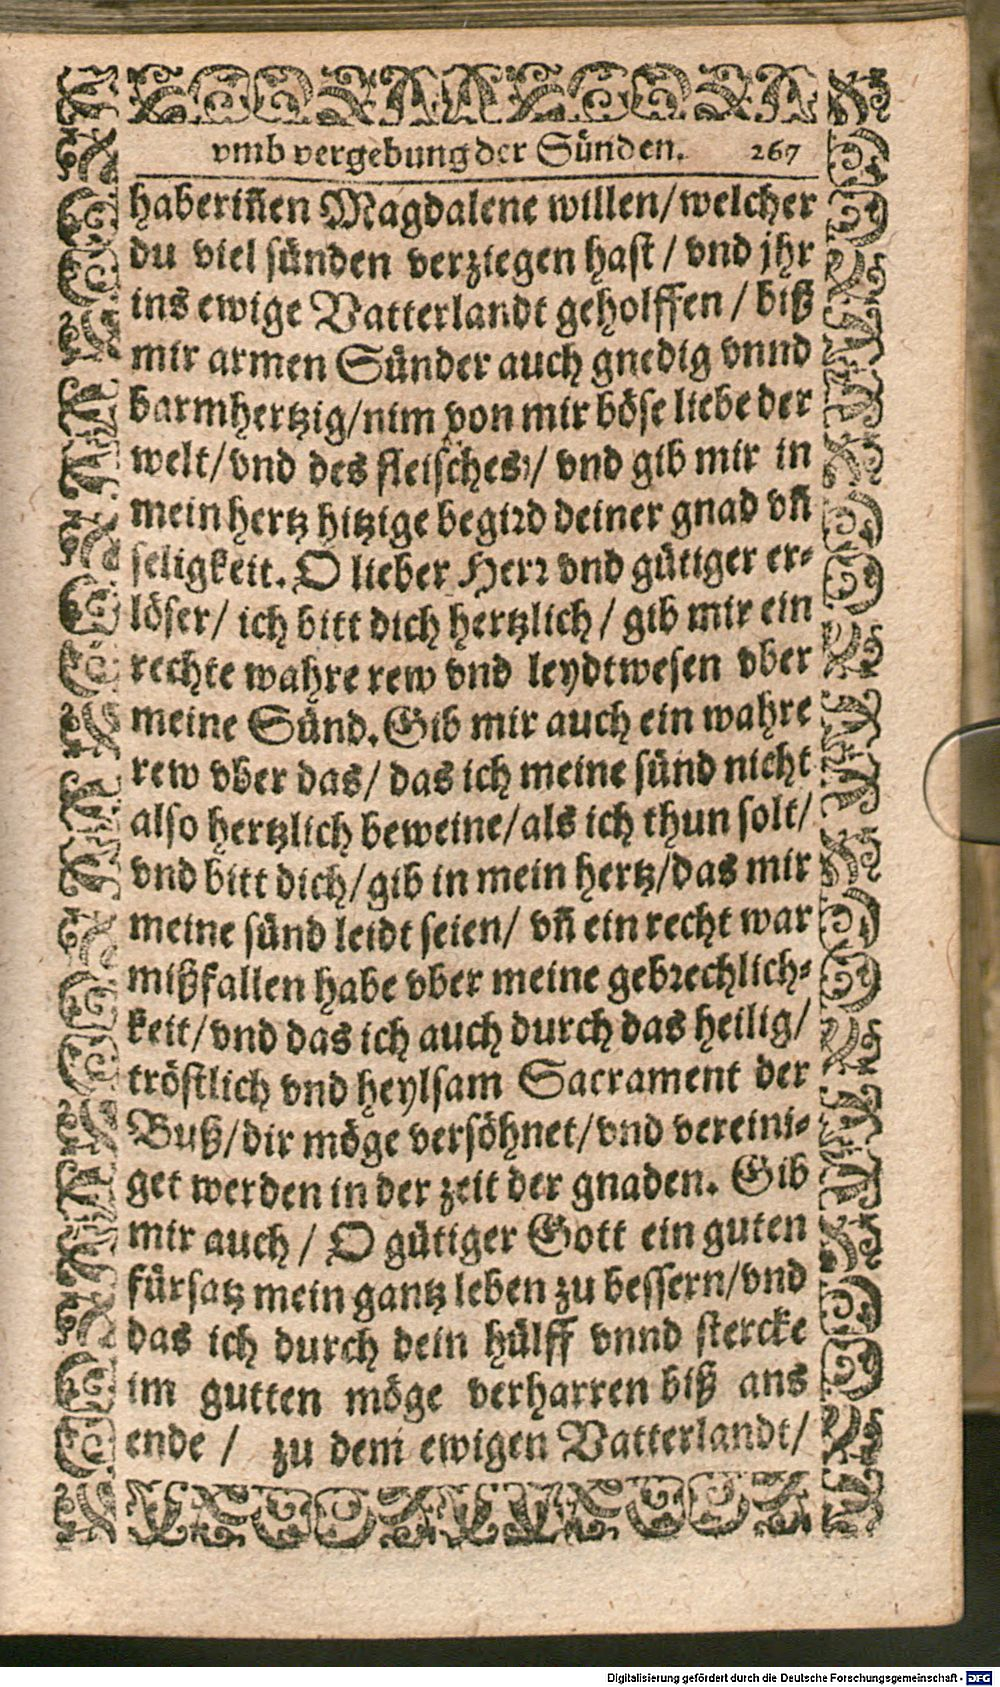 vmb vergebung der Sünden. 267
haberiñen Magdalene willen/ welcher
du viel sünden verziegen hast / vnd jhr
ins ewige Vatterlandt geholffen / biß
mir armen Sünder auch gnedig vnnd
barmhertzig/nim von mir böse liebe der
welt/ vnd des fleisches/ vnd gib mir in
mein hertz hitzige begird deiner gnad vñ
seligkeit. O lieber Herr vnd gütiger er-
löser/ ich bitt dich hertzlich / gib mir ein
rechte wahre rew vnd leydtwesen vber
meine Sünd. Gib mir auch ein wahre
rew vber das/ das ich meine sünd nicht
also hertzlich beweine/als ich thun solt/
vnd bitt dich/gib in mein hertz/das mir
meine sünd leidt seien/ vñ ein recht war
mißfallen habe vber meine gebrechlich-
keit/vnd das ich auch durch das heilig/
tröstlich vnd heylsam Sacrament der
Buß/dir möge versöhnet/vnd vereini-
get werden in der zeit der gnaden. Gib
mir auch / O gütiger Gott ein guten
fürsatz mein gantz leben zu bessern/vnd
das ich durch dein hülff vnnd stercke
im gutten möge verharren biß ans
ende / zu dem ewigen Vatterlandt/
Digitalisierung gefördert durch die Deutsche Forschungsgemeinschaft - DFG